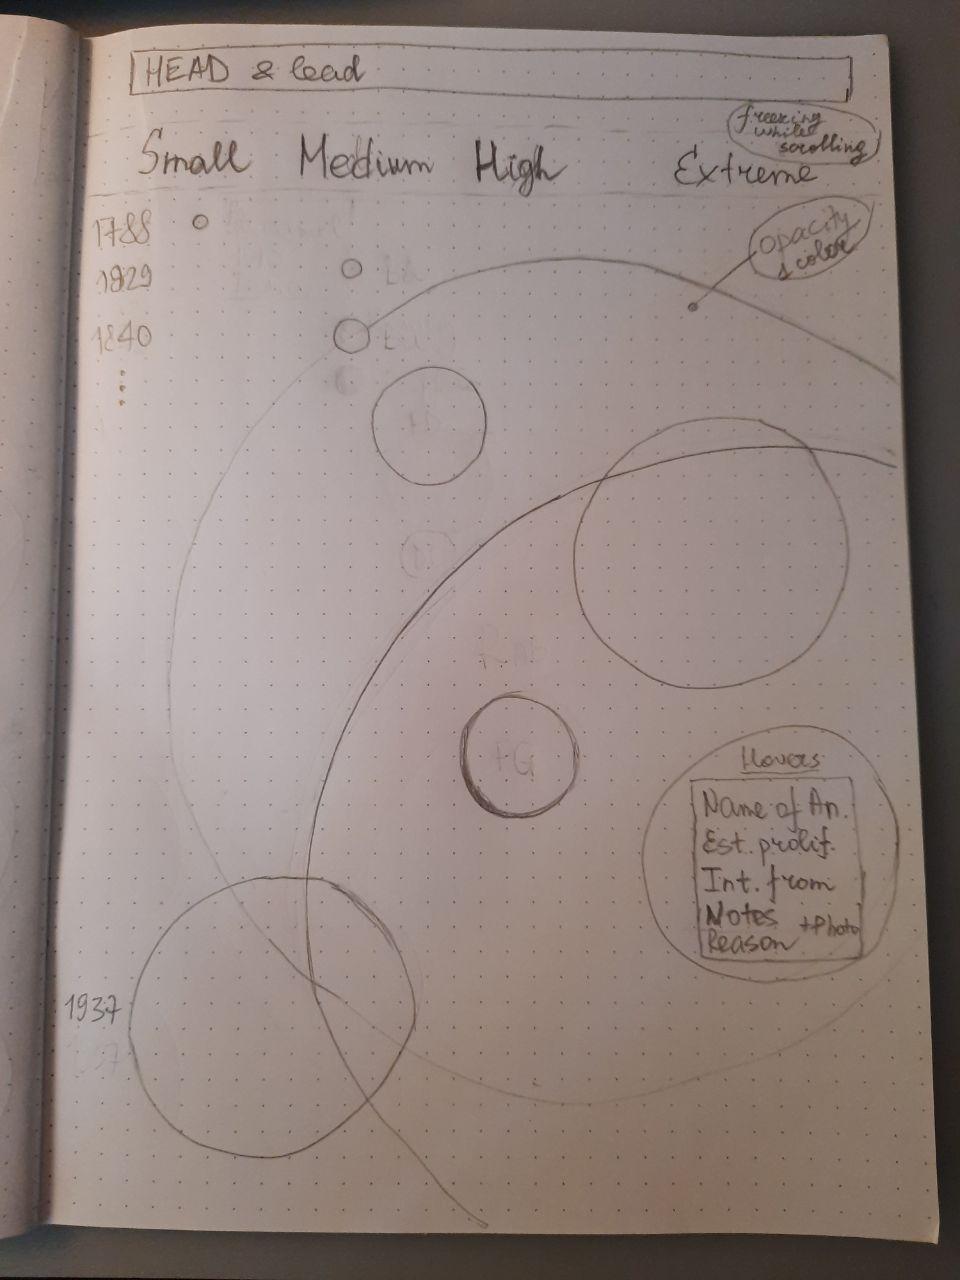 HEAD & lead
freezing
while
scrolling
Small Medium High Extreme
1788
1829
1840
opacity
& color
Hovers
Name of An.
Est. prolif.
Int. from
Notes +Photo
Reason
1937